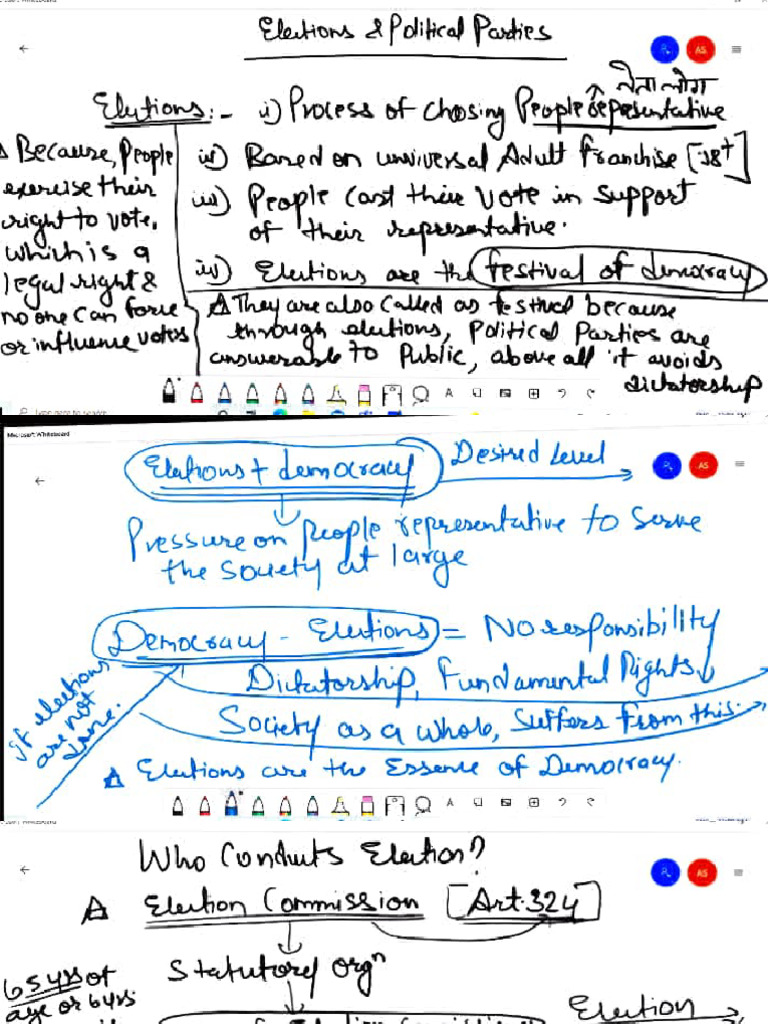 Elections & Political Parties
नेता लोग
Elections:- i) Process of choosing People representative
ii) Based on universal Adult franchise [18+]
iii) People cast their vote in support
of their representative.
iv) Elections are the festival of democracy
Because, People
exercise their
right to vote,
which is a
legal right &
no one can force
or influence voters
They are also called as festival because
through elections, Political Parties are
answerable to Public, above all it avoids
dictatorship
Microsoft Whiteboard
AS
Elections + democracy Desired Level
Pressure on people representative to serve
the society at large
Democracy - Elections = No responsibility
Dictatorship, Fundamental Rights ↓
Society as a whole, suffers from this.
if elections
are not
done.
Elections are the Essence of Democracy.
Who Conducts Election?
AS
Election Commission [Art.324]
Statutory orgn
65 yrs of
age or 6 yrs
Election